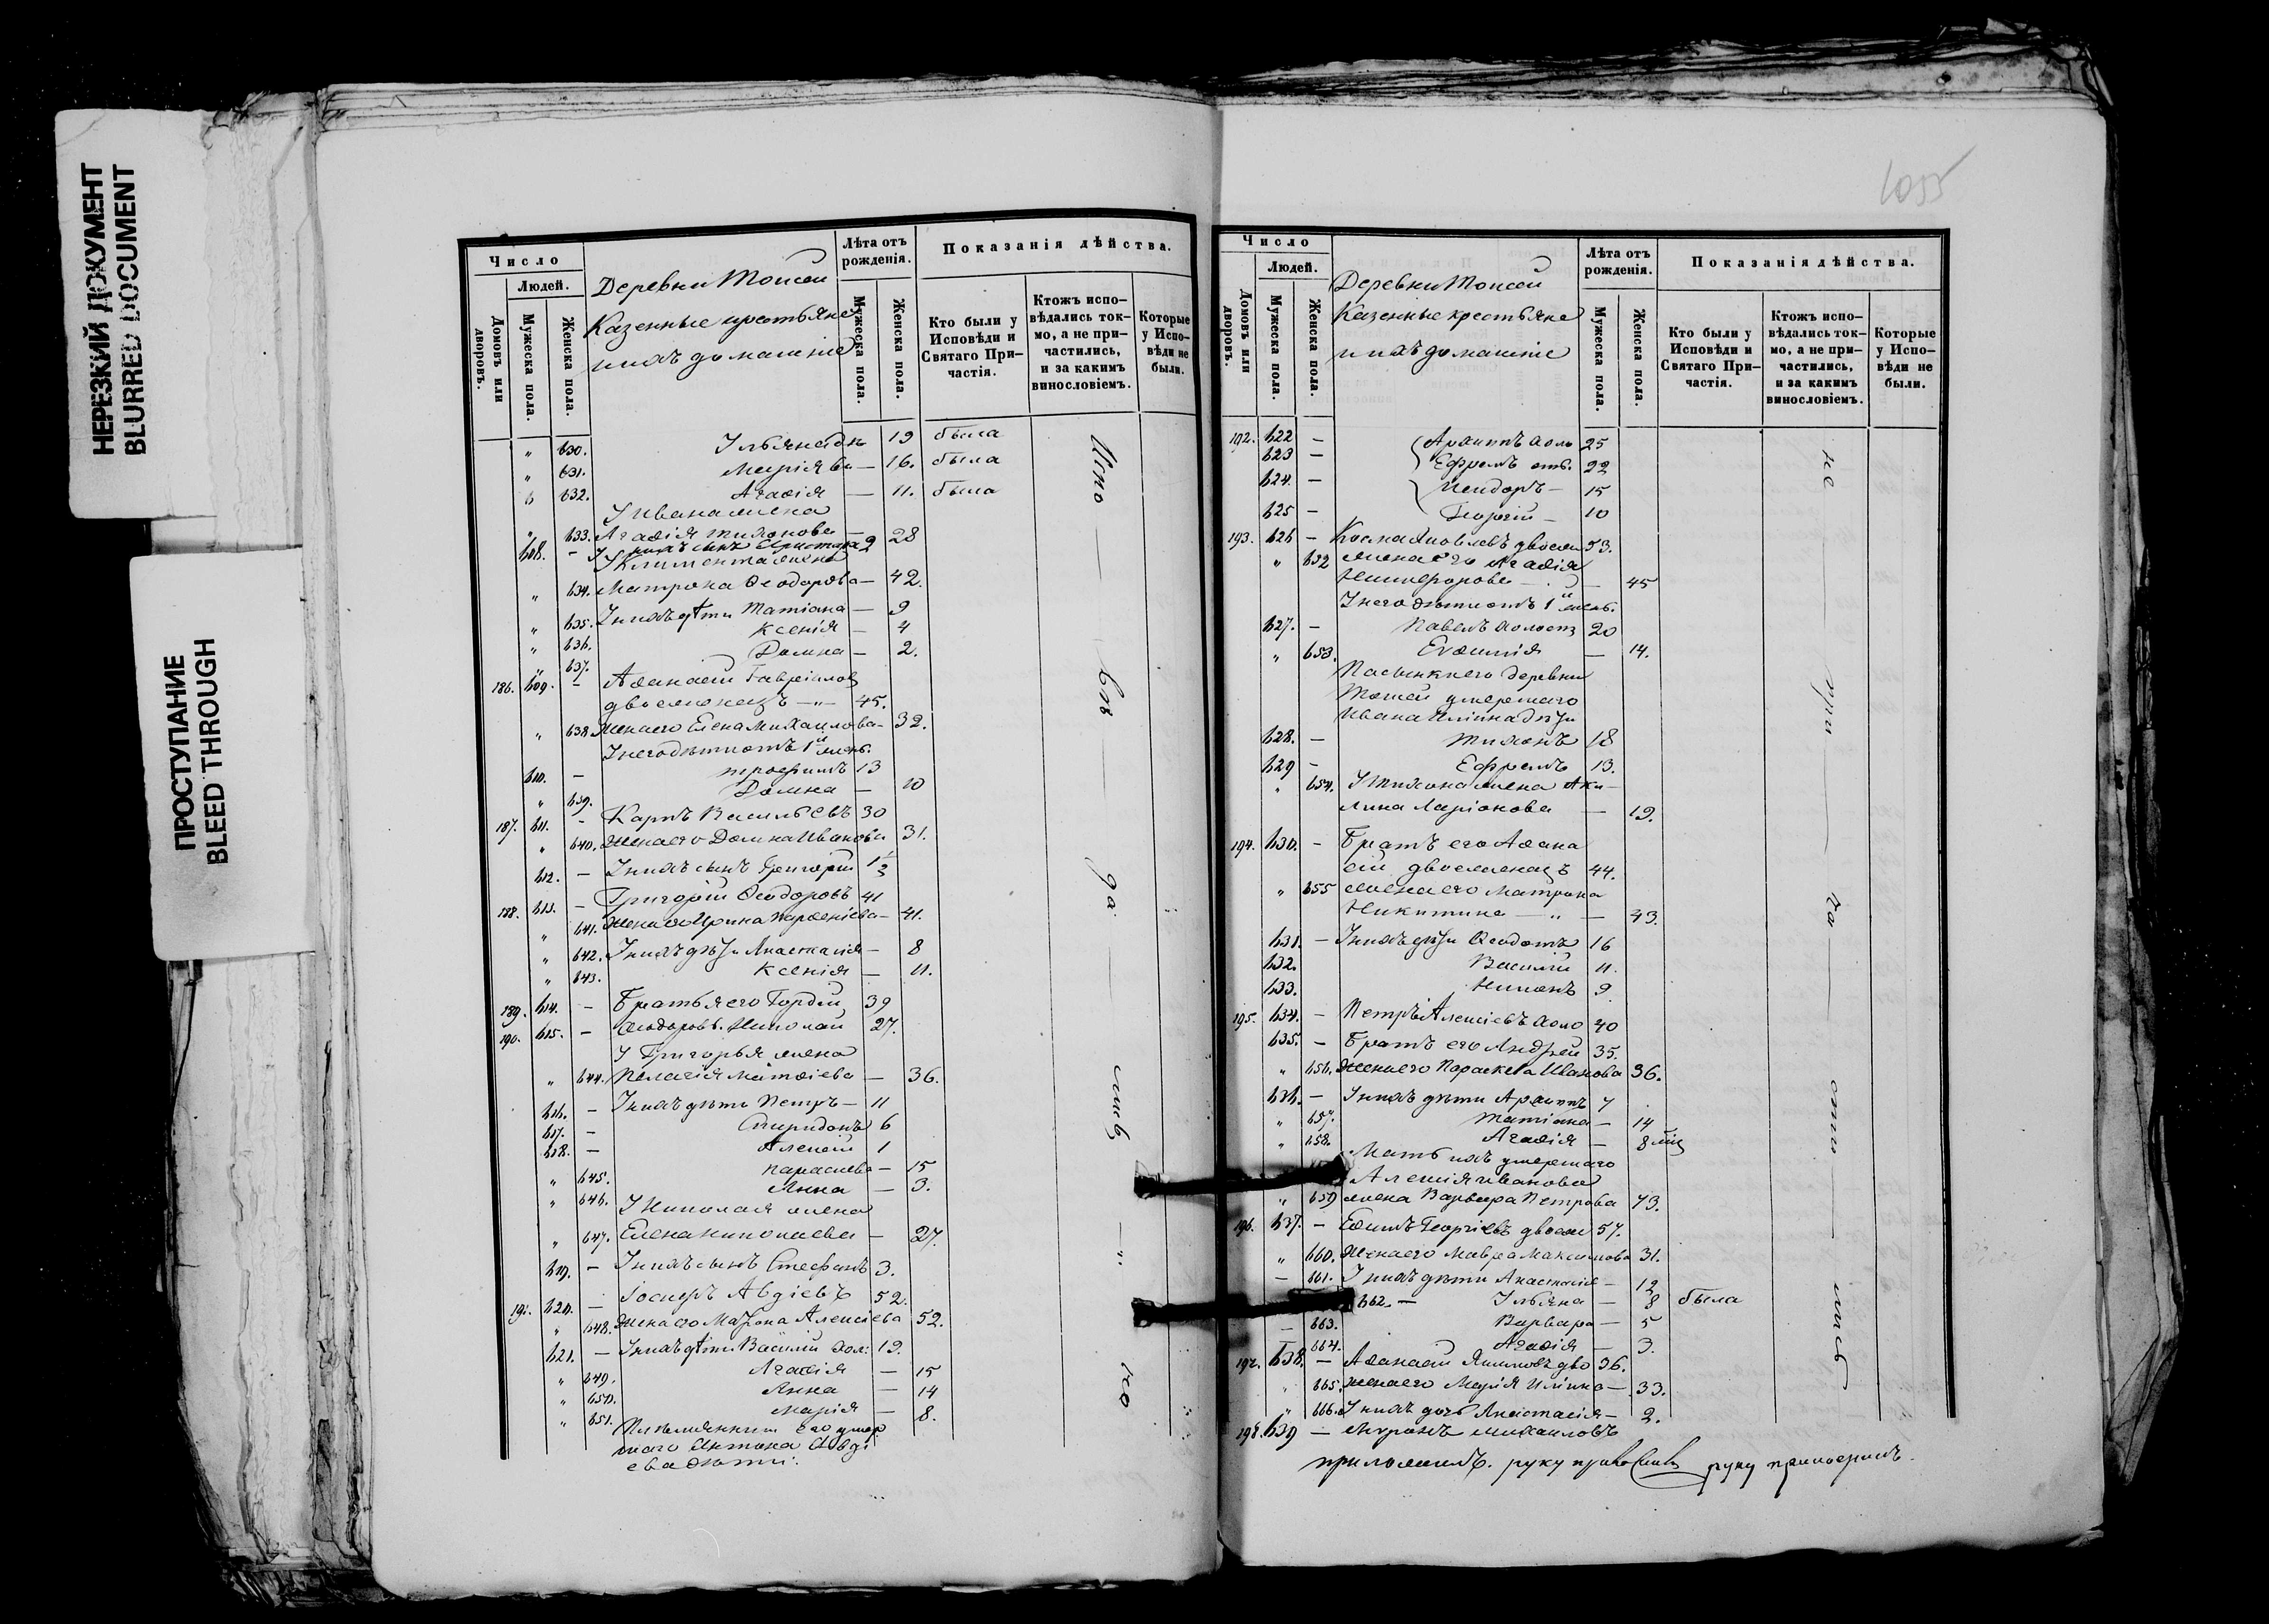 НЕРЕЗКИЙ ДОКУМЕНТ
BLURRED DOCUMENT
ПРОСТУПАНИЕ
BLEED THROUGH
Число
Людей.
Домовъ или дворовъ.
Мужеска пола.
Женска пола.
Деревни
Казенные крестьяне
и ихъ домашніе
Лѣта отъ рожденія.
Мужеска пола.
Женска пола.
Показанія дѣйства.
Кто были у Исповѣди и Святаго При-частія.
Ктожъ испо-вѣдались ток-мо, а не при-частились, и за каким винословіемъ.
Которые у Испо-вѣди не были.
" 630. Ульяна 19 была
" 631. Марія — 16. была
" 632. Агафія — 11. была
У Ивана жена
" 633. Агафія Тихонова — 28
608. — У нихъ сынъ 2
У Климента жена
" 634. Матрона Ѳеодорова — 42.
" 635. У нихъ дѣти Татіана — 9
" 636. Ксенія — 4
" 637. Домна — 2.
186. 609. — Аѳанасій Гавріиловъ
двоеженецъ — " — 45.
" 638. Жена его Елена Михаилова — 32.
У него дѣти отъ 1й жены
610. — Трофимъ 13
" 639. Домна — 10
187. 611. — Карпъ Васильевъ 30
" 640. Жена его Домна Иванова 31.
612. — У нихъ сынъ Григорій
188. 613. — Григорій Ѳеодоровъ 41
" 641. Жена его Ирина Парѳеніева — 41.
" 642. У нихъ дѣти Анастасія — 8
" 643. Ксенія — 11.
189. 614. — Братья его Гордій 39
190. 615. — Ѳеодоровъ. Николай 27.
У Григорья жена
" 644. Пелагія Матѳіева — 36.
616. — У нихъ дѣти Петръ — 11
617. — Спиридонъ 6
618. — Алексій 1
" 645. Параскева — 15
" 646. Анна — 3.
У Николая жена
" 647. Елена Николаева — 27.
619. — У нихъ сынъ Стефанъ 3.
191. 620. — Іосифъ Авдіевъ 52.
" 648. Жена его Матрона Алексіева 52.
621. — У нихъ дѣти Василій хол: 19.
" 649. Агафія — 15
" 650. Анна — 14
" 651. Марія — 8.
Племянники его умер
шаго Антона Авді
ева дѣти:
1055
Число
Людей.
Домовъ или дворовъ.
Мужеска пола.
Женска пола.
Деревни
Казенные крестьяне
и ихъ домашніе
Лѣта отъ рожденія.
Мужеска пола.
Женска пола.
Показанія дѣйства.
Кто были у Исповѣди и Святаго При-частія.
Ктожъ испо-вѣдались ток-мо, а не при-частились, и за каким винословіемъ.
Которые у Испо-вѣди не были.
192. 622 — Архипъ холо 25
623 — Ефремъ 22
624. — Исидоръ — 15
625 — Георгій — 10
193. 626 — Косма Яковлевъ двоеж 53.
" 652 жена его Агафія
Никифорова — 45
У него дѣти отъ 1й жены.
627. — Павелъ холост 20
" 653. Евѳимія — 14.
Пасынки его деревни
умершаго
Ивана Ильина дѣти
628. — Тихонъ 18
629 — Ефремъ 13.
" 654. У Тихона жена Аки-
лина Ларіонова — 19.
194. 630. — Братъ его Аѳана
сій двоеженецъ 44.
" 655 жена его Матрона
Никитина — " — 43.
631. — У нихъ дѣти Ѳеодотъ 16
632. Василій 11.
633. Никонъ 9
195. 634. — Петръ Алексіевъ холо 40
635. — Братъ его Андрей 35.
" 656. Жена его Параскева Иванова 36.
636. — У нихъ дѣти Архипъ 7
" 657. Татіана — 14
" 658. Агафія — 8 міц
Мать ихъ умершаго
Алексія Иванова
" 659 жена Варвара Петрова 73.
196. 637. — Евѳимъ Георгіевъ двоеж 57.
" 660. Жена его Мавра Максимова 31.
— 661. У нихъ дѣти Анастасія — 12
662. — Ульяна — 8 была
— 663. Варвара — 5
664. Агафія — 3.
197. 638. — Аѳанасій Якимовъ дво 36.
" 665. Жена его Марія Ильина — 33.
" 666. У нихъ дочь Анастасія — 2.
198. 639 — Миронъ Михаиловъ
приложилъ. руку руку